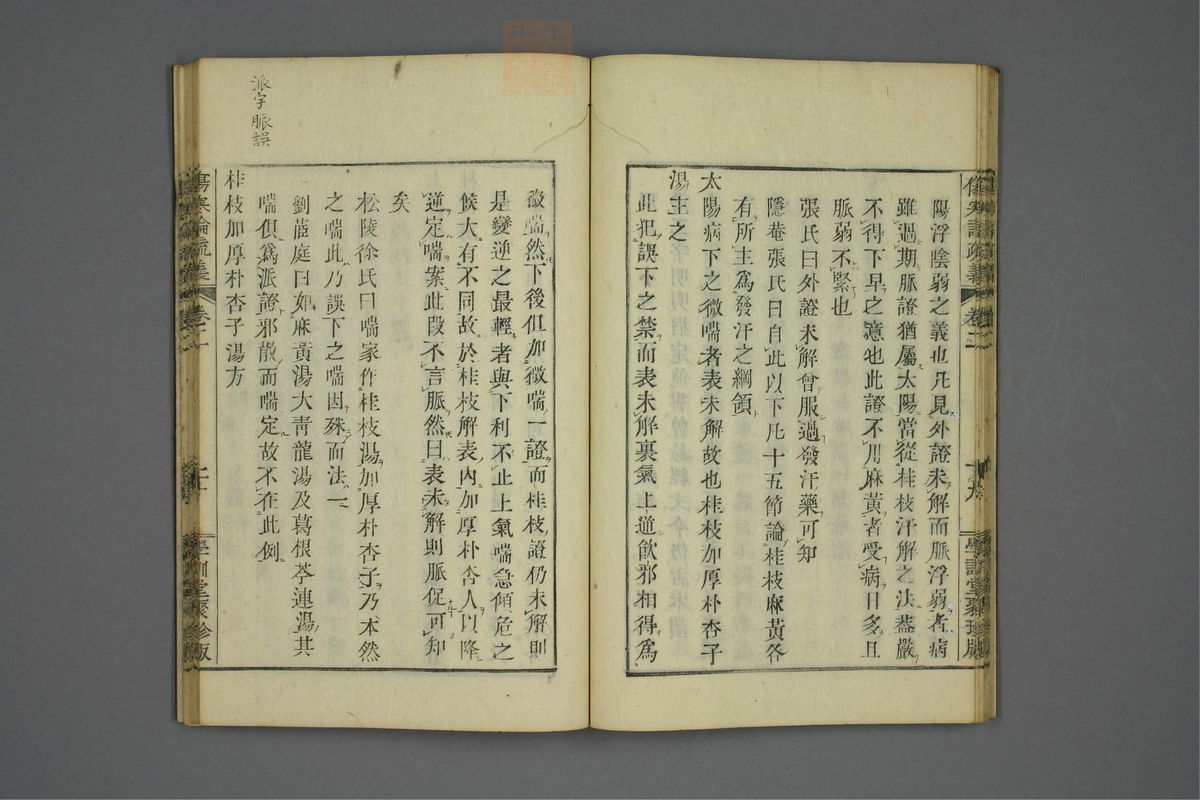 傷寒論疏義 卷二 十九 學訓堂聚珍版
陽浮陰弱之義也凡見外證未解而脈浮弱者病
雖過期脈證猶屬太陽當從桂枝汗解之法葢嚴
不得下早之意也此證不用麻黃者受病日多且
脈弱不緊也
張氏曰外證未解曾服過發汗藥可知
隱菴張氏曰自此以下凡十五節論桂枝麻黃各
有所主爲發汗之綱領
太陽病下之微喘者表未解故也桂枝加厚朴杏子
湯主之
此犯誤下之禁而表未解裏氣上逆飮邪相得爲
微喘然下後但加微喘一證而桂枝證仍未解則
是變逆之最輕者與下利不止上氣喘急傾危之
候大有不同故於桂枝解表內加厚朴杏人以降
逆定喘案此段不言脈然曰表未解則脈促可知
矣
松陵徐氏曰喘家作桂枝湯加厚朴杏子乃本然
之喘此乃誤下之喘因殊而法一
劉蒓庭曰如麻黃湯大靑龍湯及葛根芩連湯其
喘俱爲派證邪散而喘定故不在此例
桂枝加厚朴杏子湯方
傷寒論疏義 卷二 學訓堂聚珍版
派字脈誤